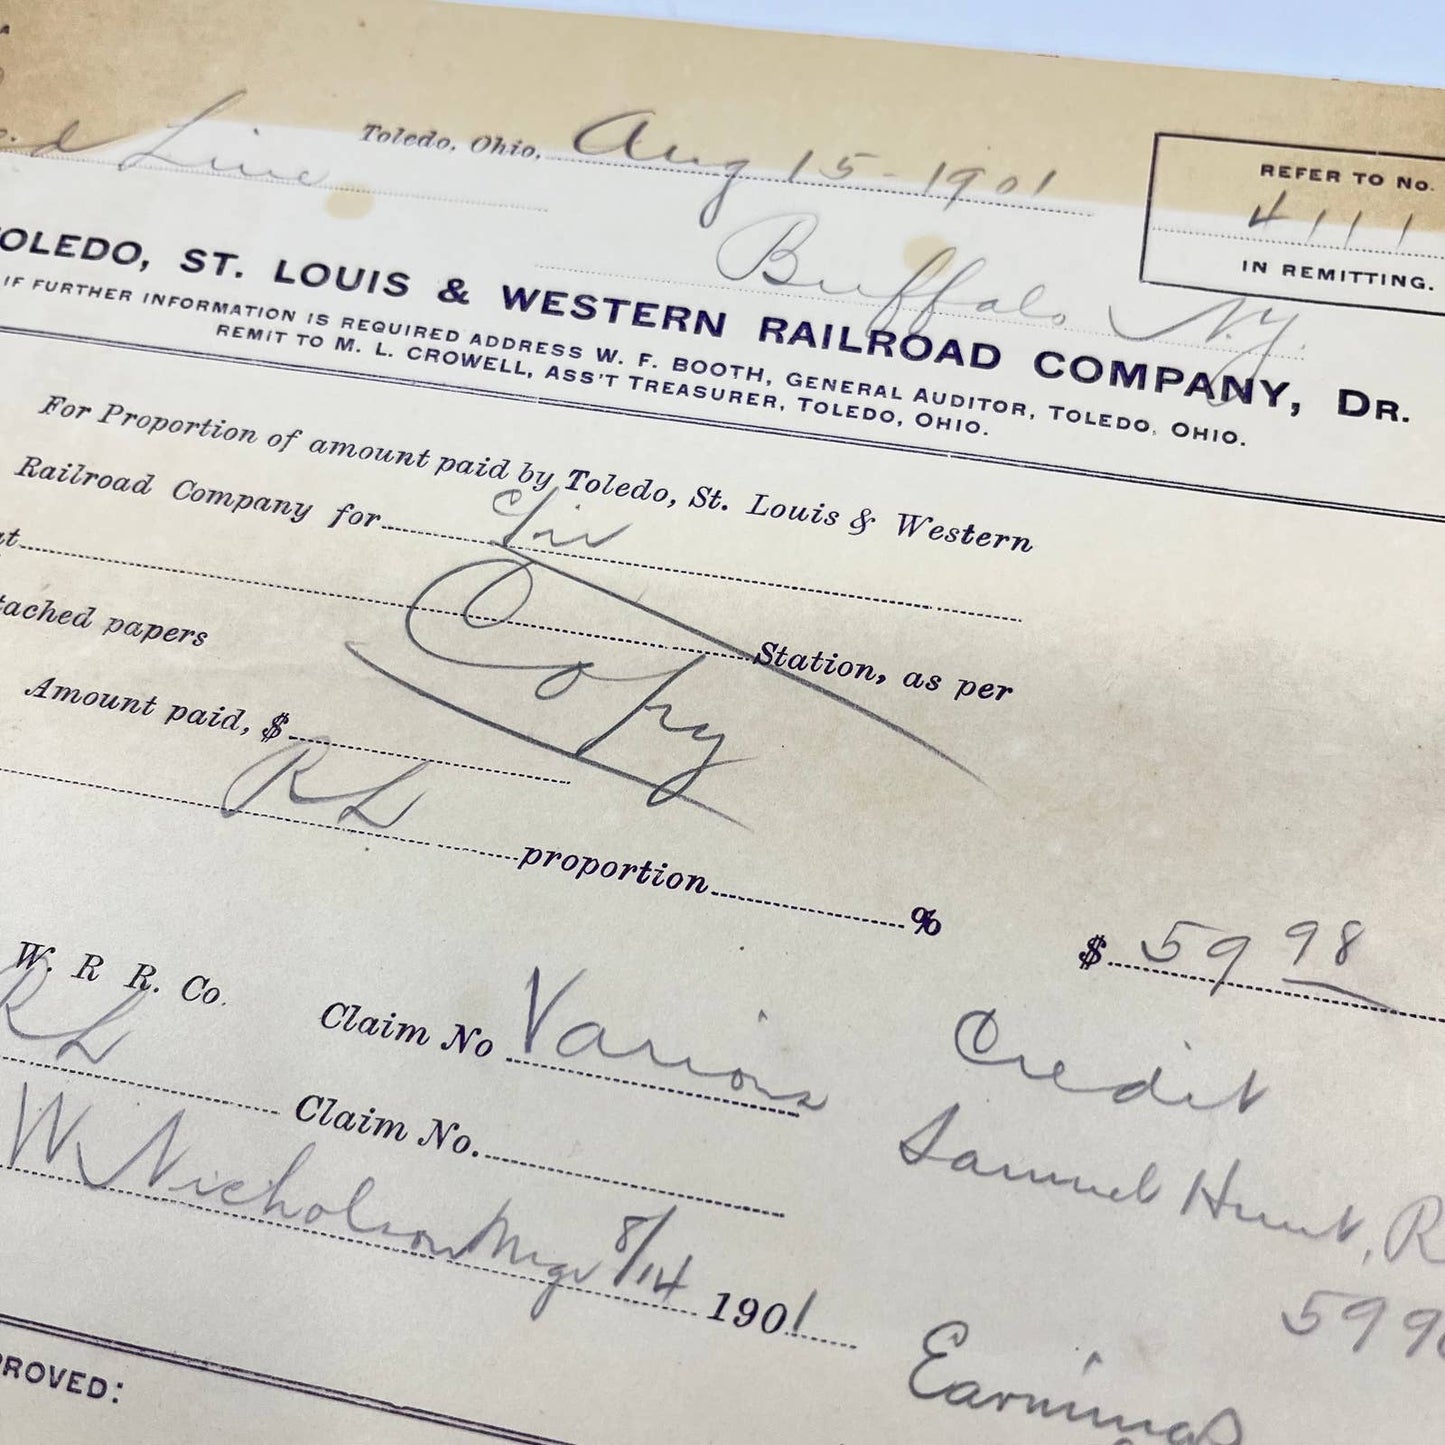 Toledo, Ohio, Aug 15-1901
REFER TO No.
4111
IN REMITTING.
d Line
Buffalo N.Y.
TOLEDO, ST. LOUIS & WESTERN RAILROAD COMPANY, DR.
IF FURTHER INFORMATION IS REQUIRED ADDRESS W. F. BOOTH, GENERAL AUDITOR, TOLEDO, OHIO.
REMIT TO M. L. CROWELL, ASS'T TREASURER, TOLEDO, OHIO.
For Proportion of amount paid by Toledo, St. Louis & Western
Railroad Company for
at Station, as per
tached papers
Copy
Amount paid, $
RL proportion %
$ 59 98
W. R R. Co. Claim No Various
Credit
RL Claim No.
Samuel Hunt, R
W Nicholson Mgr 8/14 1901
599
Earnings
PROVED: